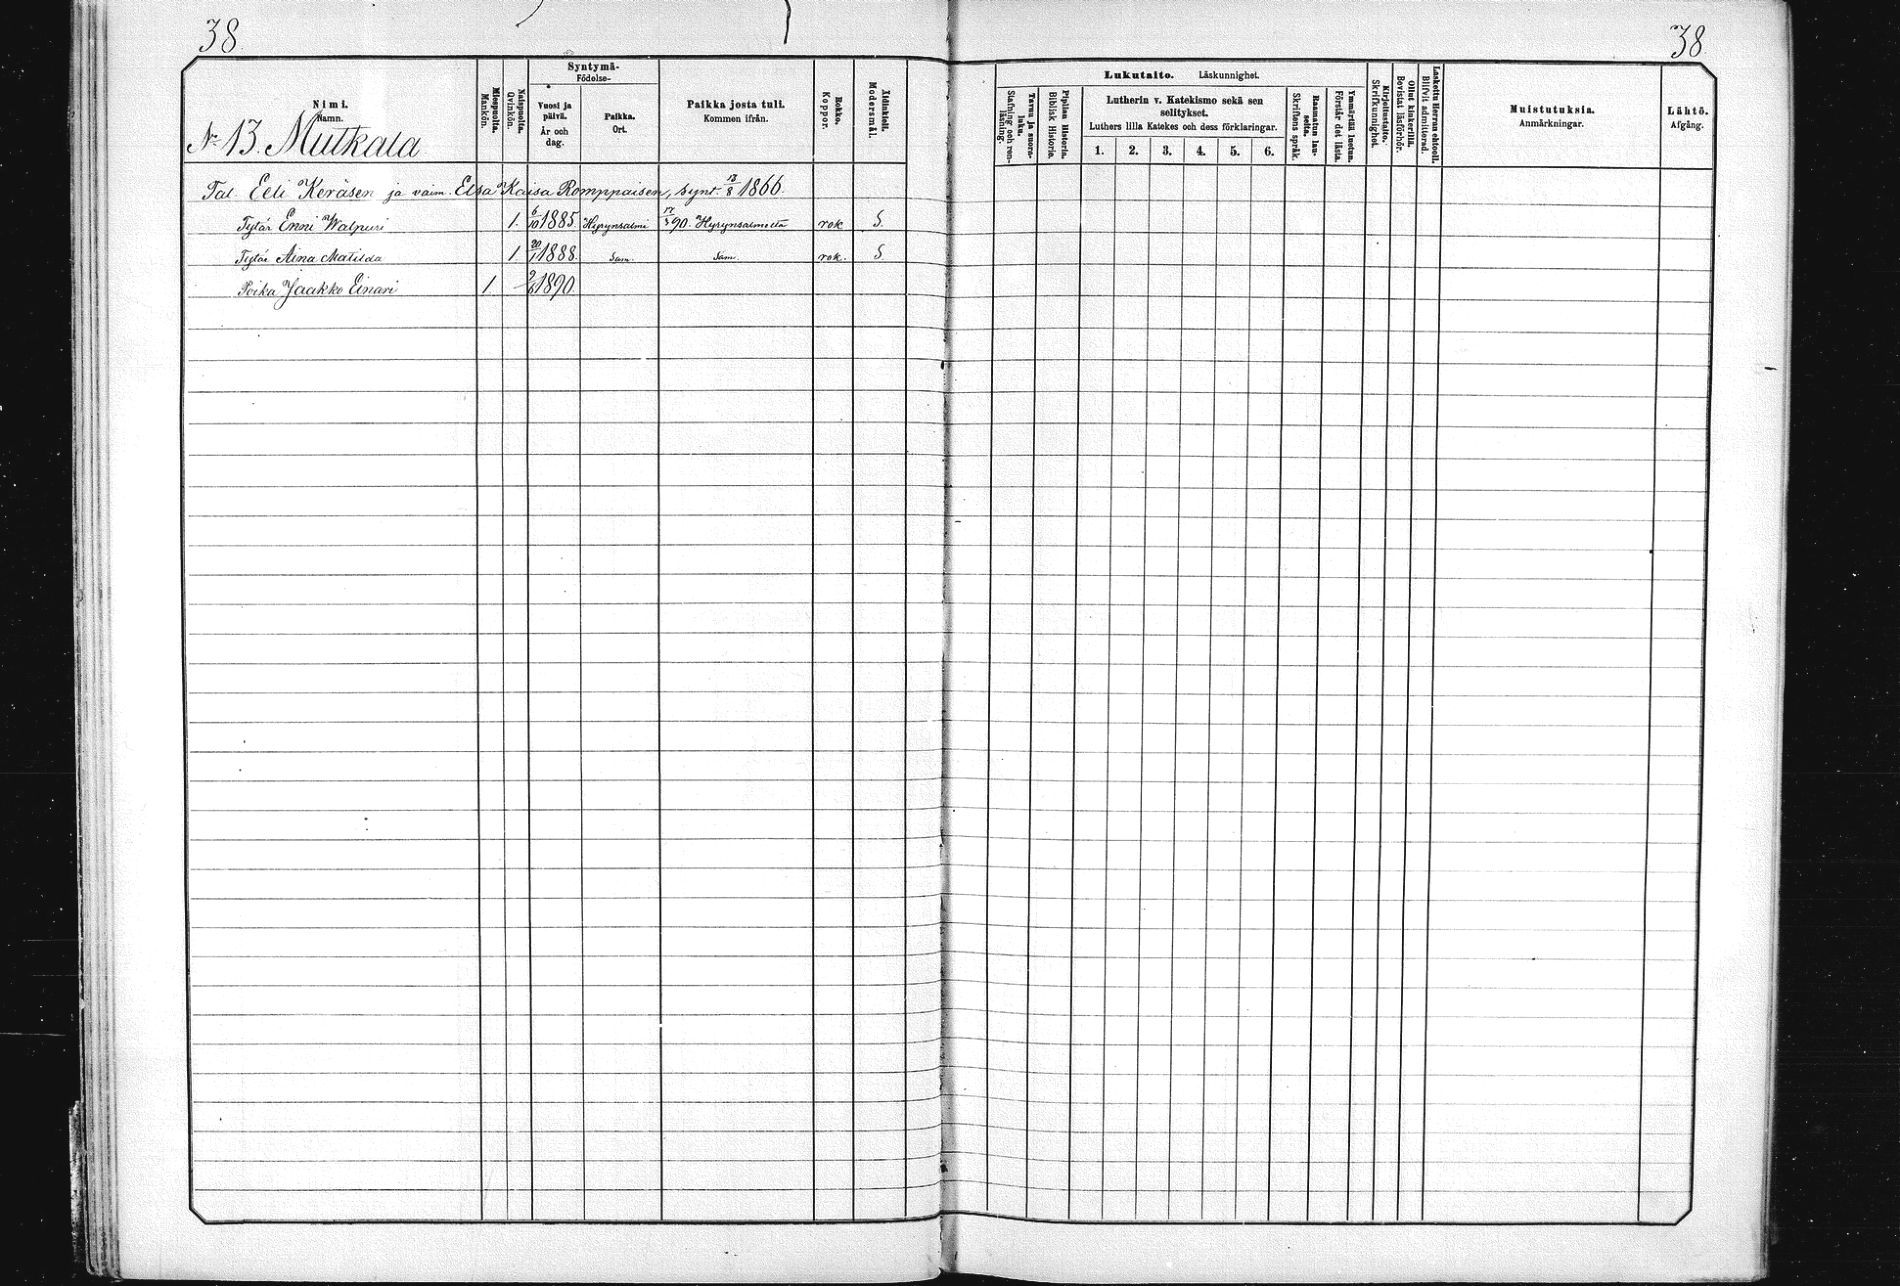 38
38
Nimi.
Namn.
Miespuolta.
Mankön.
Naispuolta.
Qvinkön.
Syntymä-
Födelse-
Vuosi ja päivä.
År och dag.
Paikka.
Ort.
Paikka josta tuli.
Kommen ifrån.
Rokko.
Koppor.
Äidinkieli.
Modersmål.
Lukutaito. Läskunnighet.
Tavuu ja suora-luku.
Stafning och ren-läsning.
Piplian Historia.
Biblisk Historie.
Lutherin v. Katekismo sekä sen
selitykset.
Luthers lilla Katekes och dess förklaringar.
1. 2. 3. 4. 5. 6.
Raamatun lau-seita.
Skriftens språk.
Ymmärtää luetun.
Förstår det lästa.
Kirjoitustaito.
Skrifkunnighet.
Ollut kinkerillä.
Bevistat läsförhör.
Laskettu Herran ehtooll.
Blifvit admitterad.
Muistutuksia.
Anmärkningar.
Lähtö.
Afgång.
No 13. Mutkala
Tal. Eeli Keräsen ja vaim. Elsa Kaisa Romppaisen, synt. 13/8 1866.
Tytär Enni Walpuri 1. 6/10 1885. Hyrynsalmi 17/3 90. Hyrynsalmelta rok S.
Tytär Aina Matilda 1 20/1 1888. Sam. Sam. rok. S.
Poika Jaakko Einari 1 1890.